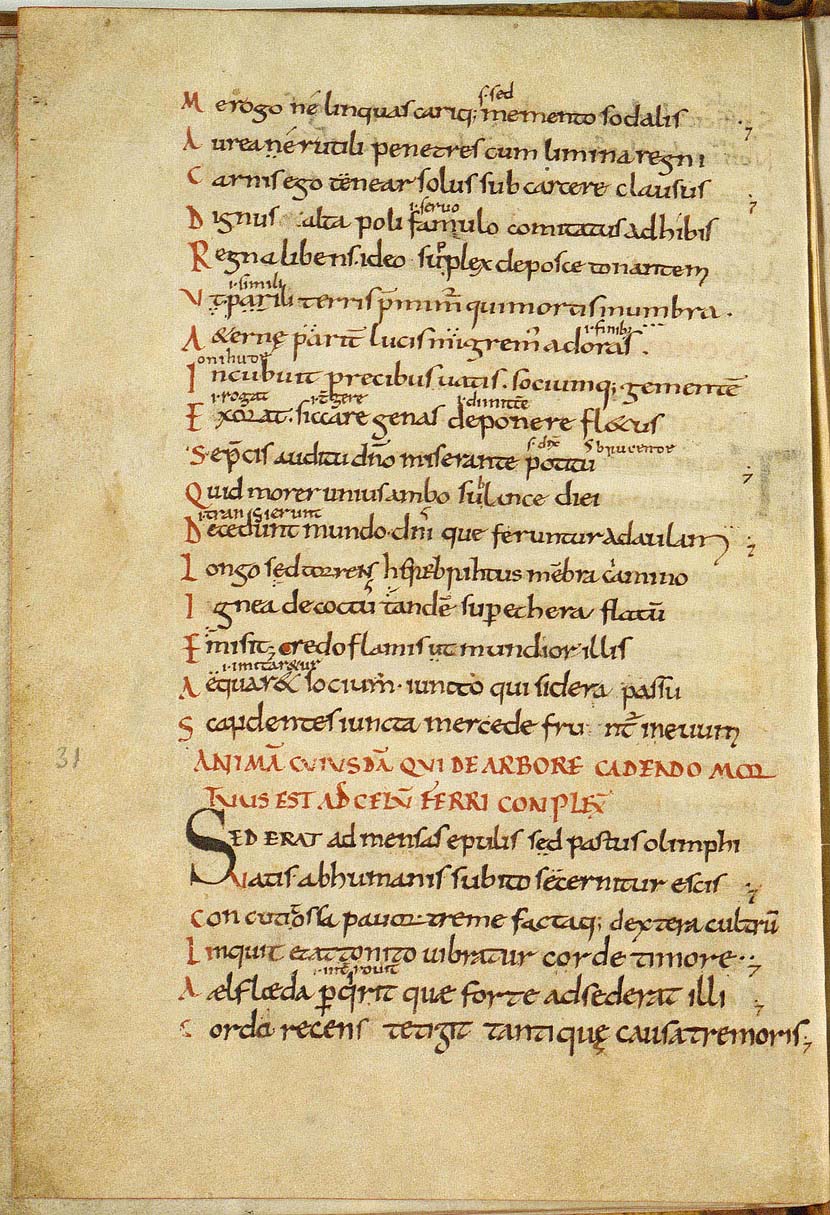 s· sed
Me rogo né linquas cariq; memento sodalis
Aurea né rutili penetres cum limina regni
Carnis ego tenear solus sub carcere clausus
i· servo
Dignus alta poli famulo comitatus adhibis
Regna libens· ideo supplex deposce tonantem
i· simili
Vt parili terris
qui mortis in umbra·
i· finib;
A&ernę
lucis
adoras·
onihvde
Incubuit precibus uatis· sociumq; gementē
i· rogat
i· dimittē
Exorat· siccare genas deponere fl&us
Sep̄cis auditu dn̄o miserante potitū
Quid morer unius ambo sub luce diei
i· transierunt
Decedunt mundo·
que feruntur ad aulam
Longo sed torrens
mēbra camino
Ignea decoctū tandē sup ethera flatū
Emisit; credo flamis ut mundior illis
i· imitareur
Aequar& socium· iuncto qui sidera passu
Scandentes iuncta mercede
in euum
31
ANIMĀ CVIVSDĀ QVI DE ARBORE CADENDO MOR
TVVS EST AD CELŪ FERRI CONPLEX̄
SED ERAT ad mensas epulis sed pastus olimphi
Vatis ab humanis subito secernitur escis
Concutit ossa pauor tremefactaq; dextera cultrū
Linquit et attonito uibratur corde timore·
Aelflæda
que forte adsederat illi
Corda recens tetigit tanti quę causa tremoris